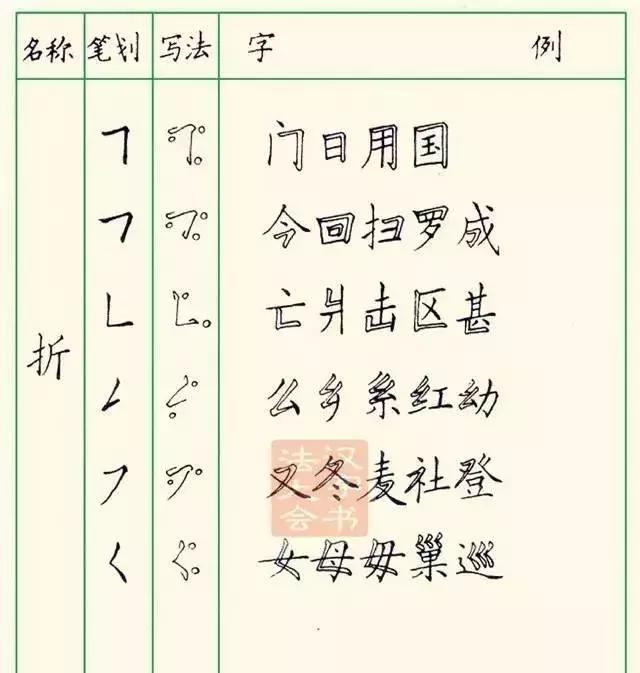 名称 笔划 写法 字 例
折
㇕ 门日用国
㇕ 今回扫罗成
㇗ 亡爿击区甚
㇜ 么乡系红幼
㇇ 又冬麦社登
㇛ 女母毋巢巡
汉字书法大会